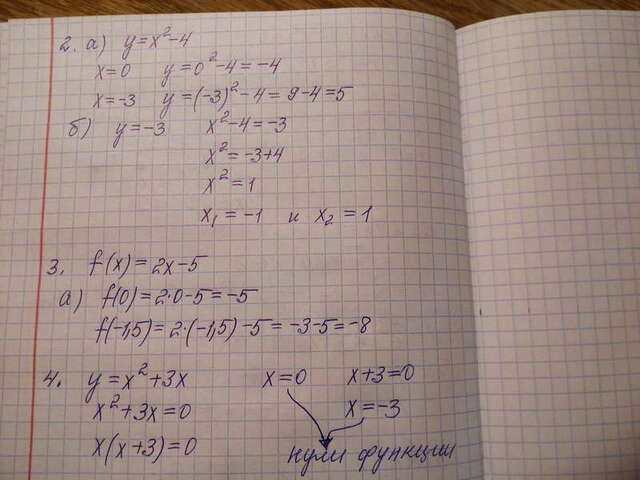 2. а) y=x²-4
x=0 y=0²-4=-4
x=-3 y=(-3)²-4=9-4=5
б) y=-3 x²-4=-3
x²=-3+4
x²=1
x₁=-1 и x₂=1
3. f(x)=2x-5
а) f(0)=2·0-5=-5
f(-1,5)=2·(-1,5)-5=-3-5=-8
4. y=x²+3x x=0 x+3=0
x²+3x=0 x=-3
x(x+3)=0 нули функции